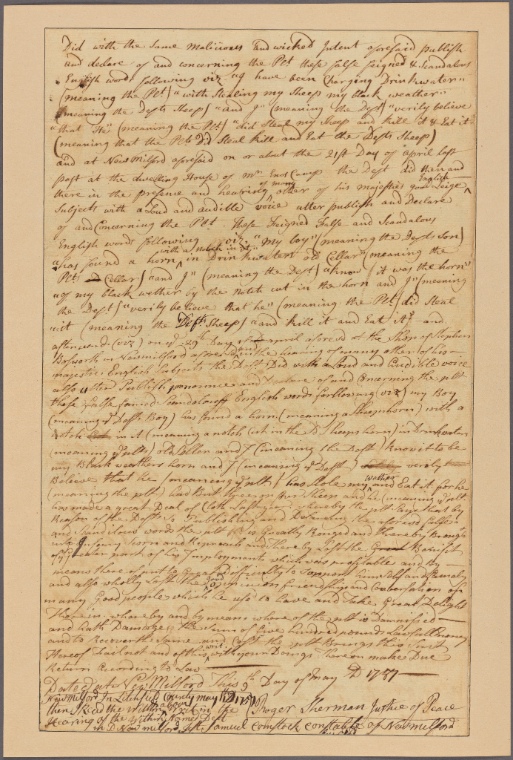 Did with the Same Malicious and wicked Intent aforesaid publish
and declare of and concerning the Plt these false feigned & Scandalous
English words following viz have been Charging Drinkwater
(meaning the Plt) with Stealing my Sheep my black weather
(meaning the Defts Sheep) and "I" (meaning the Deft) "verily believe
"that He" (meaning the Plt) "did Steal my Sheep and kill it & Eat it"
(meaning that the Plt Did Steal kill and Eat the Defts Sheep)
and at New Milford aforesaid on or about the 21st Day of April last
past at the dwelling House of Mr the Deft did then and
there in the presence and hearing of many other of his majesties good Leige English
Subjects with a Loud and audible voice utter publish and Declare
of and Concerning the Plt these Feigned False and Scandalous
English words following viz "My boy" (meaning the Defts Son)
has found a horn with a notch in it in Drinkwaters Cellar (meaning the
Plts Cellar) "and I" (meaning the Deft) "know it was the horn"
"of my black wether by the notch cut in the horn and I" meaning
the Deft) "verily believe that he" (meaning the Plt) did Steal
"it (meaning the Defts Sheep) "and kill it and Eat it" and
afterward (viz) on ye Day of April aforesd at the Shop of Stephen
in Newmilford aforesd in the hearing of many other of his
majesties English Subjects the Deft Did with a Loud and Audible voice
also utter Publish pronounce and Declare of and Concerning the Plt
these false feigned Scandalouss English words following viz) my Boy
(meaning ye Defts Boy) has found a horn (meaning a Sheeps horn) with a
Notch in it (meaning a notch cut in the Sheeps horn) in Drinkwaters
(meaning ye Plts) Cellar and I (meaning the Deft) know it to be
my Black weathers horn and I (meaning ye Deft) verily
Believe that he (meaning ye Plt) has Stole my wether and Eat it for he
(meaning the plt) had But Sheep and he (meaning ye Plt
has made a great Deal of Cloth thereby the plt Says that by
Reason of the Defts So Publishing and Declaring the aforesd false
and Scandalous words the plt is Greatly Damaged and thereby Brought
into Disgrace Scorn and Reproach and thereby Lost the Benefit
of Great part of his Imployment which was profitable and by
means there of put to Great Difficulty to Support himself and family
and also wholly Lost the good Opinion friendship and Conversation of
many Good people which he use to have and take Great Delight
Therein whereby and by means whereof the plt is Damnified
and hath Damage the Sum of five hundred pounds Lawfull money
and to Recover the Same with Cost the plt Brings this Suit
Hereof fail not and of this writ with your Doings therein make Due
Return According to Law
Dated at New Milford this 9th Day of may AD 1757
Newmilford in Litchfield County may 1757 Roger Sherman Justice of Peace
then Read the within writ in the
Hearing of the within named Deft
in Newmilford Test Samuel Comstock constable of Newmilford